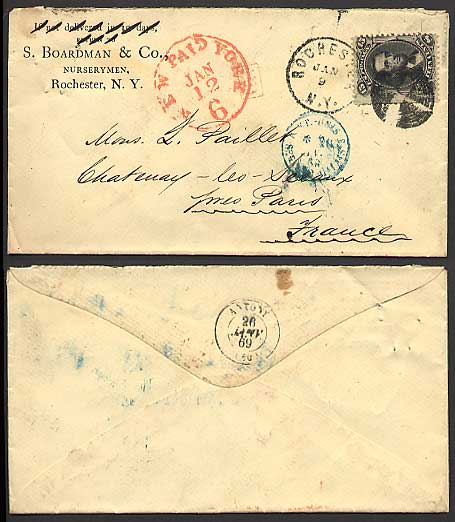 If not delivered in 10 days,
return to
S. BOARDMAN & Co.,
NURSERYMEN,
Rochester, N. Y.
NEW PAID YORK
JAN
12
6
ROCHESTER
JAN
9
N.Y.
Mons. L. Paillet
Chatenay-les-Sceaux
près Paris
France
ANTONY
26
JANV
69
(60)